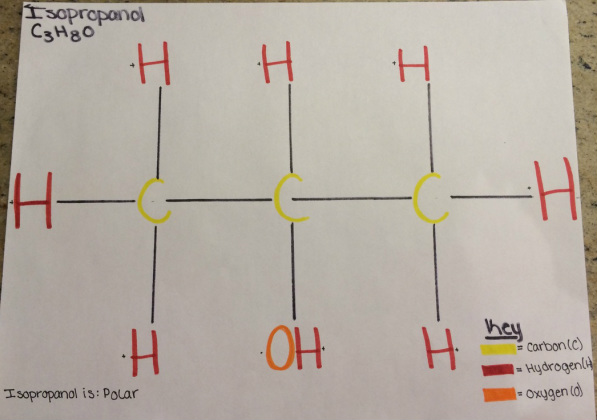 Isopropanol
C3H8O
H H H
H C C C H
H OH H
Key
= Carbon(C)
= Hydrogen(H
= Oxygen(O)
Isopropanol is: Polar